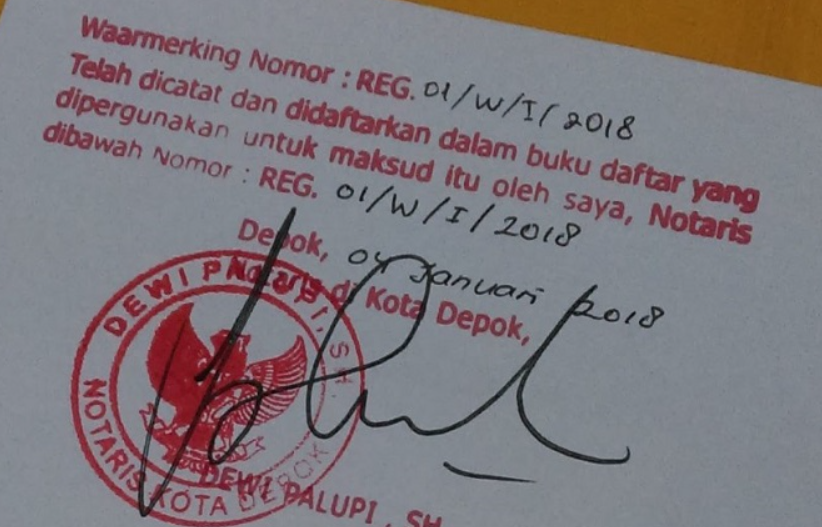 Waarmerking Nomor : REG. 01/W/I/2018
Telah dicatat dan didaftarkan dalam buku daftar yang
dipergunakan untuk maksud itu oleh saya, Notaris
dibawah Nomor : REG. 01/W/I/2018
Depok, 04 Januari 2018
Notaris di Kota Depok,
DEWI PALUPI, SH.
NOTARIS KOTA DEPOK
DEWI PALUPI , SH